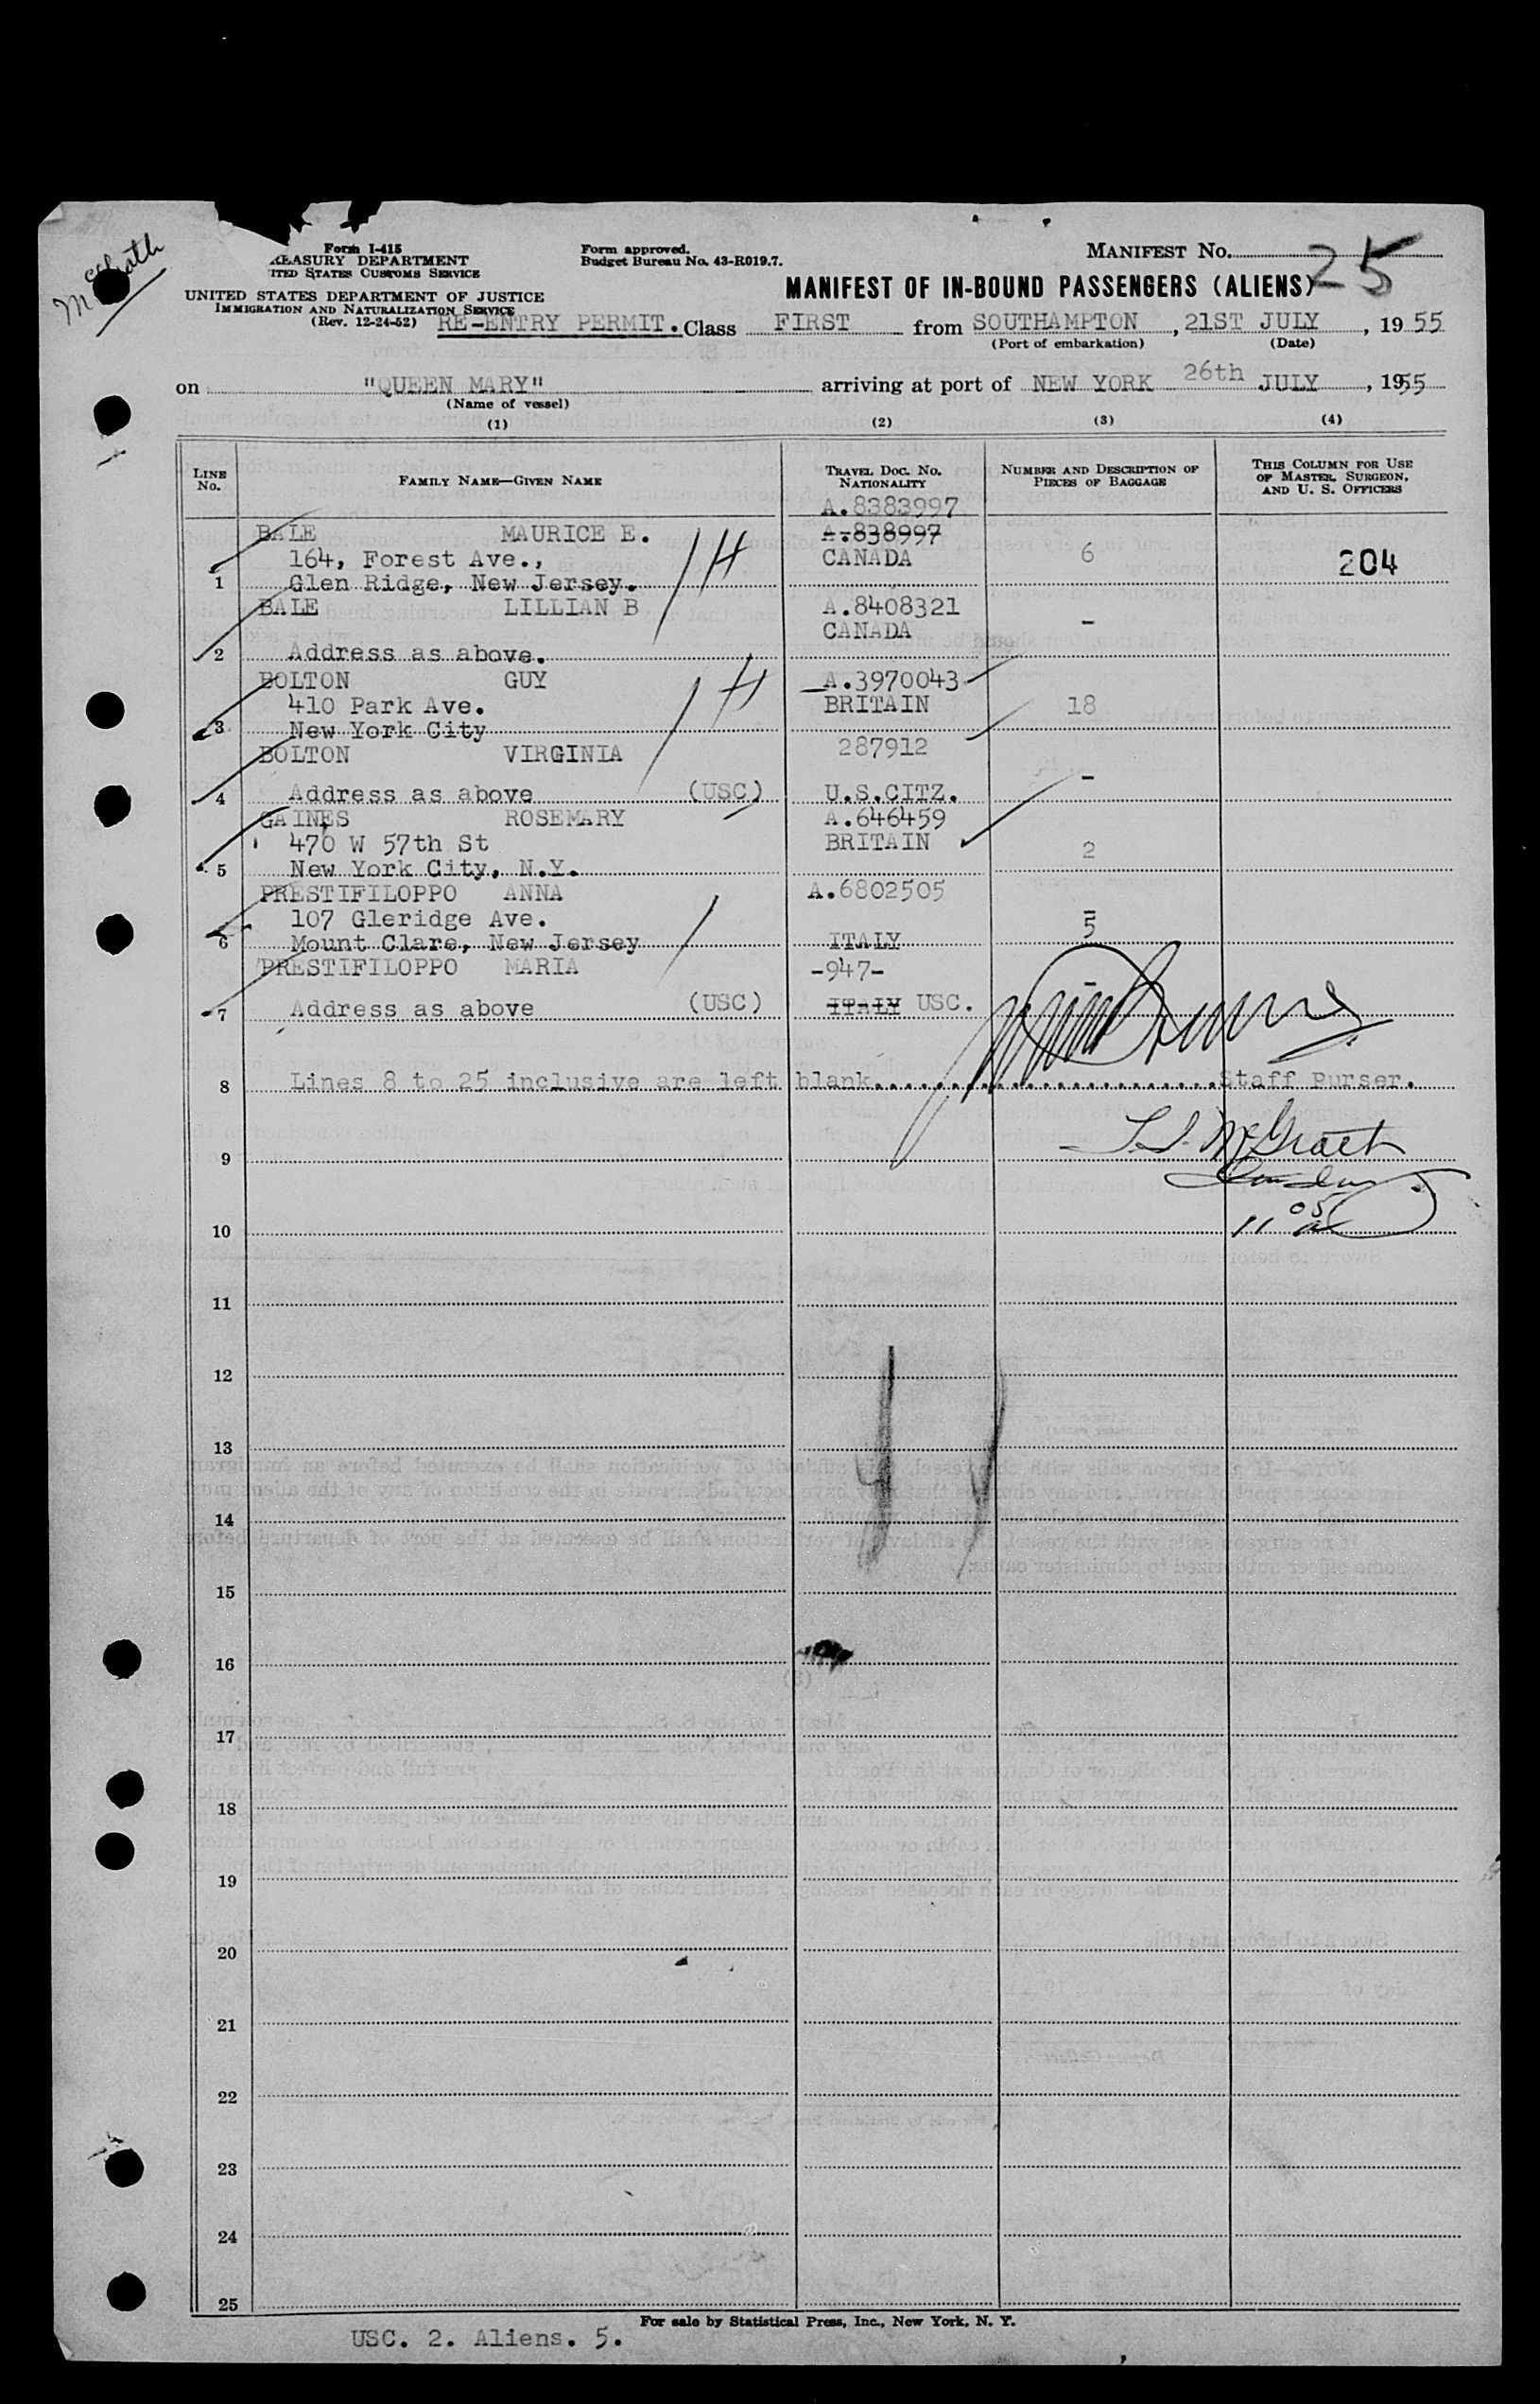 McGrath
Form I-415
TREASURY DEPARTMENT
UNITED STATES CUSTOMS SERVICE
UNITED STATES DEPARTMENT OF JUSTICE
IMMIGRATION AND NATURALIZATION SERVICE
(Rev. 12-24-52)
Form approved.
Budget Bureau No. 43-R019.7.
MANIFEST NO. 25
MANIFEST OF IN-BOUND PASSENGERS (ALIENS)
RE-ENTRY PERMIT. Class FIRST from SOUTHAMPTON, 21ST JULY, 1955
(Port of embarkation) (Date)
on "QUEEN MARY" arriving at port of NEW YORK 26th JULY, 1955
(Name of vessel)
(1) (2) (3) (4)
LINE No. FAMILY NAME—GIVEN NAME TRAVEL DOC. NO. NATIONALITY NUMBER AND DESCRIPTION OF PIECES OF BAGGAGE THIS COLUMN FOR USE OF MASTER, SURGEON, AND U. S. OFFICERS
A.8383997
BALE MAURICE E. A.838997
164, Forest Ave., CANADA 6 204
1 Glen Ridge, New Jersey.
BALE LILLIAN B A.8408321
CANADA -
2 Address as above.
BOLTON GUY A.3970043
410 Park Ave. BRITAIN 18
3 New York City
BOLTON VIRGINIA 287912
-
4 Address as above (USC) U.S.CITZ.
GAINES ROSEMARY A.646459
470 W 57th St BRITAIN 2
5 New York City, N.Y.
PRESTIFILOPPO ANNA A.6802505
107 Gleridge Ave. 5
6 Mount Clare, New Jersey ITALY
PRESTIFILOPPO MARIA -947-
-
7 Address as above (USC) ITALY USC.
8 Lines 8 to 25 inclusive are left blank..............................Staff Purser.
T.J. McGrath
9
10
11
12
13
14
15
16
17
18
19
20
21
22
23
24
25
For sale by Statistical Press, Inc., New York, N. Y.
USC. 2. Aliens. 5.